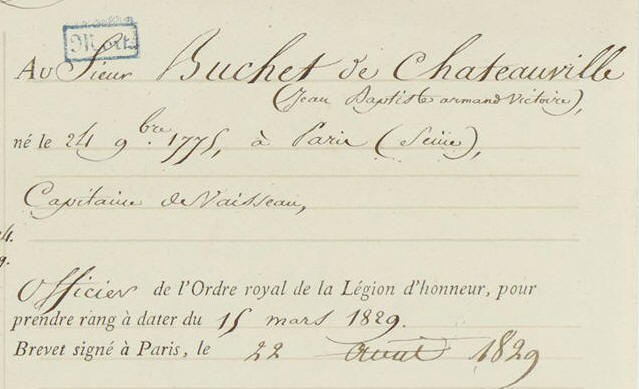 Mort.
Au Sieur Buchet de Chateauville
(Jean Baptiste armand Victoire),
né le 24 9.bre 1775, à Paris (Seine),
Capitaine de Vaisseau,
Officier de l'Ordre royal de la Légion d'honneur, pour
prendre rang à dater du 15 mars 1829.
Brevet signé à Paris, le 22 août 1829